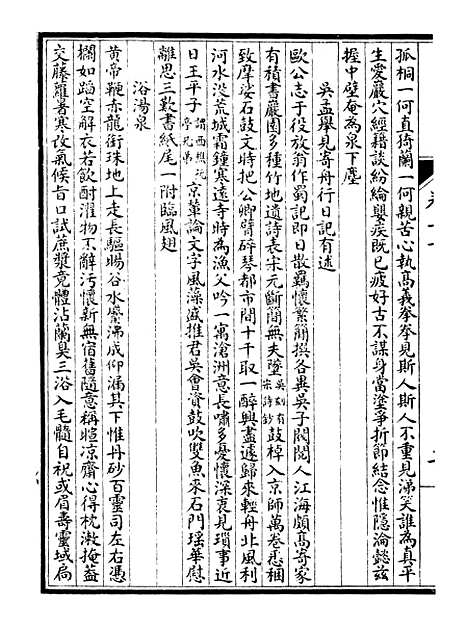 孤桐一何直猗蘭一何親苦心執高義拳拳見斯人斯人不重見涕笑誰為真平
生愛巖穴經籍談紛綸嬰疾既已疲好古不謀身當塗爭折節結念惟隱淪懿茲
握中璧奄為泉下塵
吳孟舉見寄舟行日記有述
歐公志于役放翁作蜀記即日散羈懷繁簡撰各異吳子閥閱人江海頗高寄家
有積書巖園多種竹地遺詩表宋元斷簡無失墜吳刻有宋詩鈔鼓棹入京師萬卷悉稇
致摩挲石鼓文時把公卿臂碎琴都市間十千取一醉興盡遽歸來輕舟北風利
河水淩荒城霜鍾寒遠寺時為漁父吟一寓滄洲意長嘯多憂懷深衷見瑣事近
日王平子謂西樵阮亭兄弟京華論文字風藻盛推君吳會資鼓吹雙魚來石門瑶華慰
離思三歎書紙尾一附臨風翅
浴湯泉
黃帝鞭赤龍銜珠地上走長驅暘谷水觱沸成仰漏其下惟丹砂百靈司左右憑
欄如蹈空解衣若飲酎濯物不辭污懷新無宿舊隨意稱暄凉齋心得枕漱掩葢
交藤蘿暑寒改氣候旨口試蔗漿竟體沾蘭臭三浴入毛髓自祝或眉壽靈域局